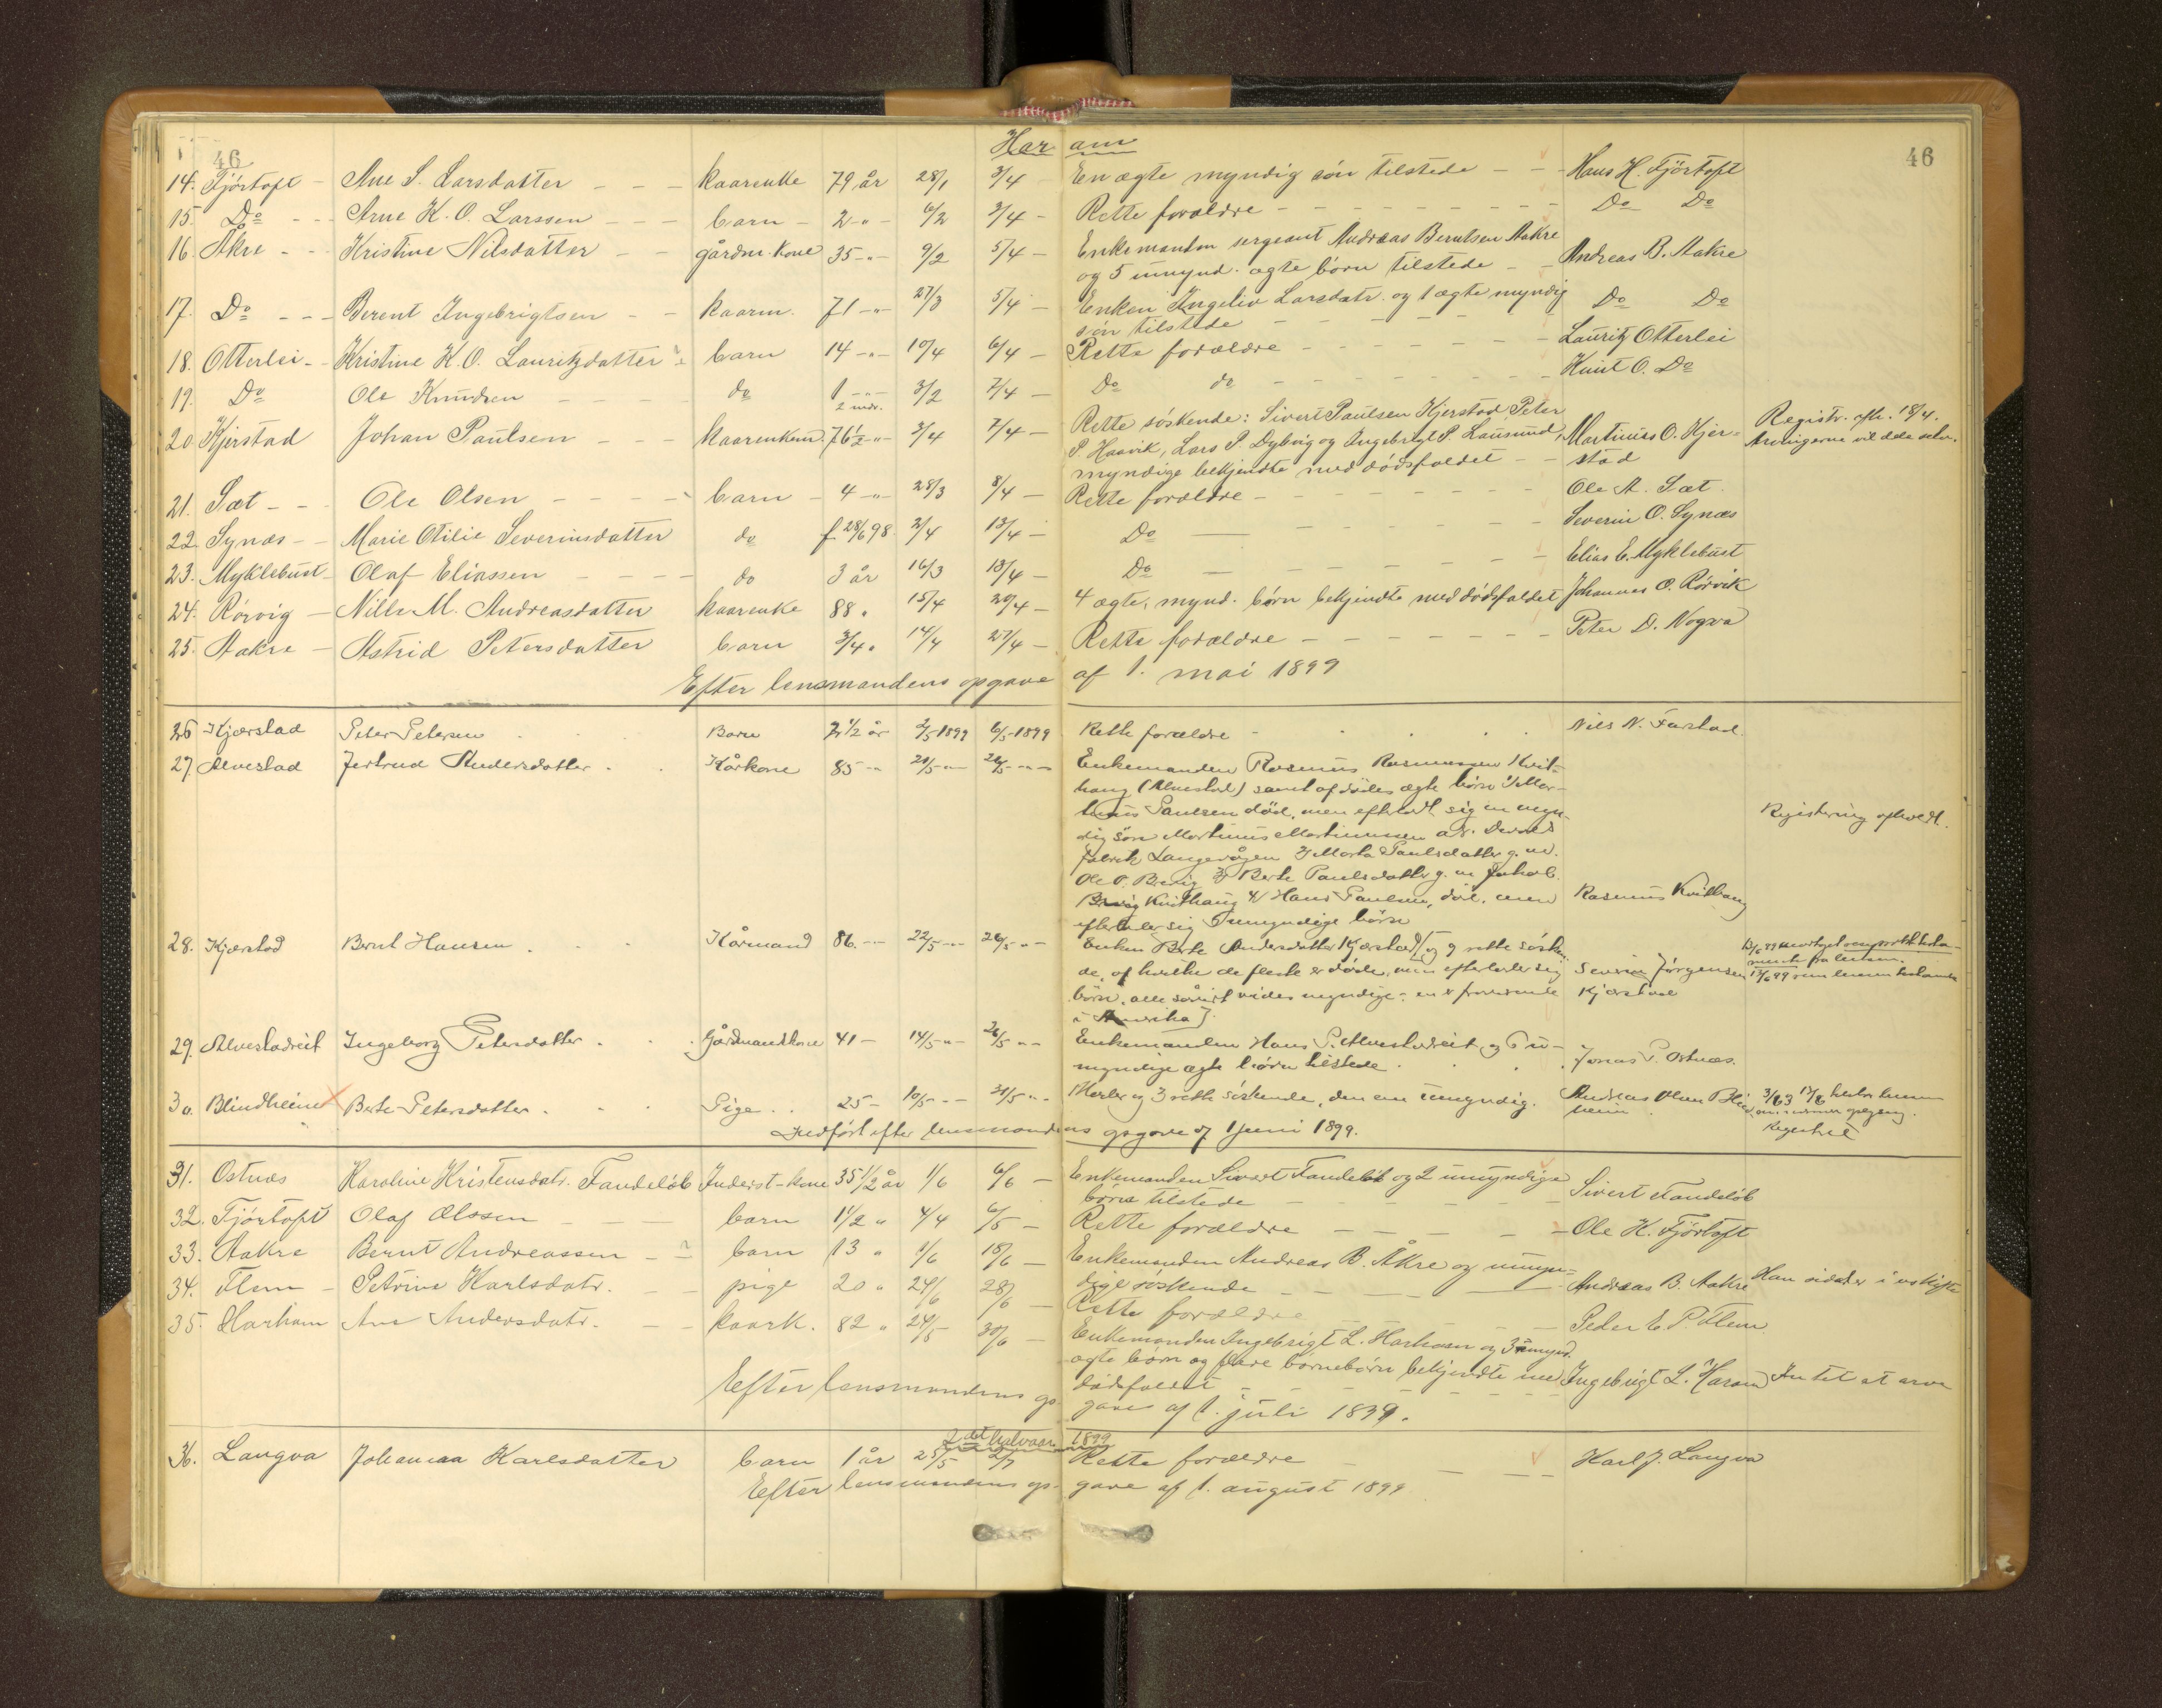 Haram
46
46
14. Fjörtoft - Ane S. Larsdatter - - - kaarenke 79 år 28/1 3/4 - En ægte myndig sön tilstede - - Hans H. Fjörtoft
15. Do - - - Arne K. O. Larssen - - - barn - 2 -"- 6/2 3/4 - Rette forældre - - - - Do Do
16. Åkre - - Kristine Nilsdatter - - gårdm. kone 35 -"- 9/2 5/4 - Enkemanden sergeant Andreas Berntsen Aakre
og 5 umynd. ægte börn tilstede - - Andreas B. Aakre
17. Do - - - Berent Ingebrigtsen - - kaarm. 71 -"- 27/3 5/4 - Enken Ingeliv Larsdatr. og 1 ægte myndig Do Do
sön tilstede
18. Otterlei - - Kristine K. O. Lauritzdatter barn 14 -"- 10/4 6/4 - Rette forældre - - - Lauritz Otterlei
19. Do Ole Knudsen - - - do 1 -"- 3/2 7/4 - Do do - - - Knut O. Do
2 mdr.
20. Kjerstad Johan Paulsen - - - kaarenkem. 76 1/2 -"- 3/4 7/4 - Rette söskende: Sivert Paulsen Kjerstad Peter
P. Haavik, Lars P. Dybvig og Ingebrigt P. Lausund, Martinus O. Kjer-
myndige bekjendte med dödsfaldet - - stad
Registr. afh. 18/4.
Arvingerne vil dele selv.
21. Sæt - - Ole Olsen - - - - barn - 4 -"- 28/3 8/4 - Rette forældre - - - Ole A. Sæt
22. Synæs - - Marie Otilie Severinsdatter do f. 28/6 98 2/4 13/4 - Do - - - Severin O. Synæs
23. Myklebust - Olaf Eliassen - - - - do 3 år 16/3 13/4 - Do - - - Elias E. Myklebust
24. Rörvig - Nille M. Andreasdatter kaarenke 88 " 15/4 20/4 - 4 ægte, mynd. börn bekjendte med dödsfaldet Johannes O. Rörvik
25. Aakre - Astrid Petersdatter barn 3/4 " 14/4 27/4 - Rette forældre - - - Peter D. Nogva
Efter lensmandens opgave af 1. mai 1899
26 Kjærstad Peter Petersen Barn 2 1/2 år 2/5 1899 6/5 1899 Rette forældre - Nils N. Farstad.
27. Alvestad Jertrud Andersdatter . . Kårkone 85 -"- 21/5 -"- 26/5 -"- Enkemanden Rasmus Rasmussen Kvit-
haug (Alvestad) samt afdödes ægte börn 1/ Mar-
tinus Paulsen död, men efterladt sig en myn-
dig sön Martinus Martinussen adr. Devolds
fabrik Langevågen 2/ Marta Paulsdatter g. m.
Ole P. Brevig 3/ Berte Paulsdatter g. m Jakob
Kvithaug 4/ Hans Paulsen, död, men Rasmus Kvithaug
efterlader sig umyndige börn
Registering ophævet.
28. Kjærstad Bernt Hansen . Kårmand 86 -"- 22/5 -"- 26/5 -"- Enken Berte Andersdatter Kjærstad [og 9 rette sösken-
de, af hvilke de fleste er döde, men efterlader sig Severin Jörgensen
börn, alle såvidt vides myndige; en er fraværende Kjærstad
i Amerika]
29. Alvestadreit Ingeborg Petersdatter . . Gårdmandskone 41 - 14/5 -"- 26/5 -"- Enkemanden Hans P. Alvestadreit og 6 u-
myndige ægte börn tilstede . . Jonas P. Ostnæs.
30. Blindheim Berte Petersdatter . . Pige . . 25 - 10/5 -"- 31/5 -"- Moder og 3 rette söskende, den ene umyndig. Andreas Olsen Blind-
heim
Registret
Indfört efter lensmandens opgave af 1 Juni 1899.
31. Ostnæs Karoline Kristensdatr. Fandelöb Inderst-kone 35 1/2 år 1/6 6/6 - Enkemanden Sivert Fandelöb og 2 umyndige
börn tilstede - - - Sivert Fandelöb
32. Fjörtoft Olaf Olssen - barn 1 1/2 " 4/4 6/5 - Rette forældre - - - Ole K. Fjörtoft
33. Aakre Bernt Andreassen - barn 13 " 1/6 18/6 - Enkemanden Andreas B. Åkre og umyn-
dige söskende - - - Andreas B. Aakre Han sidder i uskifte
34. Flem - Petrine Karlsdatr. - - pige 20 " 24/6 28/6 - Rette forældre - - - Peder E. P. Flem
35. Harham Ane Andersdatr. - - kaark. 82 " 24/5 30/6 - Enkemanden Ingebrigt L. Harham og 3 mynd.
ægte börn og flere börnebörn bekjendte med Ingebrigt L. Haram Intet at arve
dödsfaldet - - -
Efter lensmandens opgave af 1. juli 1899.
2det halvaar 1899
36. Langva Johanna Karlsdatter barn 1 år 25/5 2/7 Rette forældre - - - Karl J. Langva
Efter lensmandens opgave af 1. august 1899